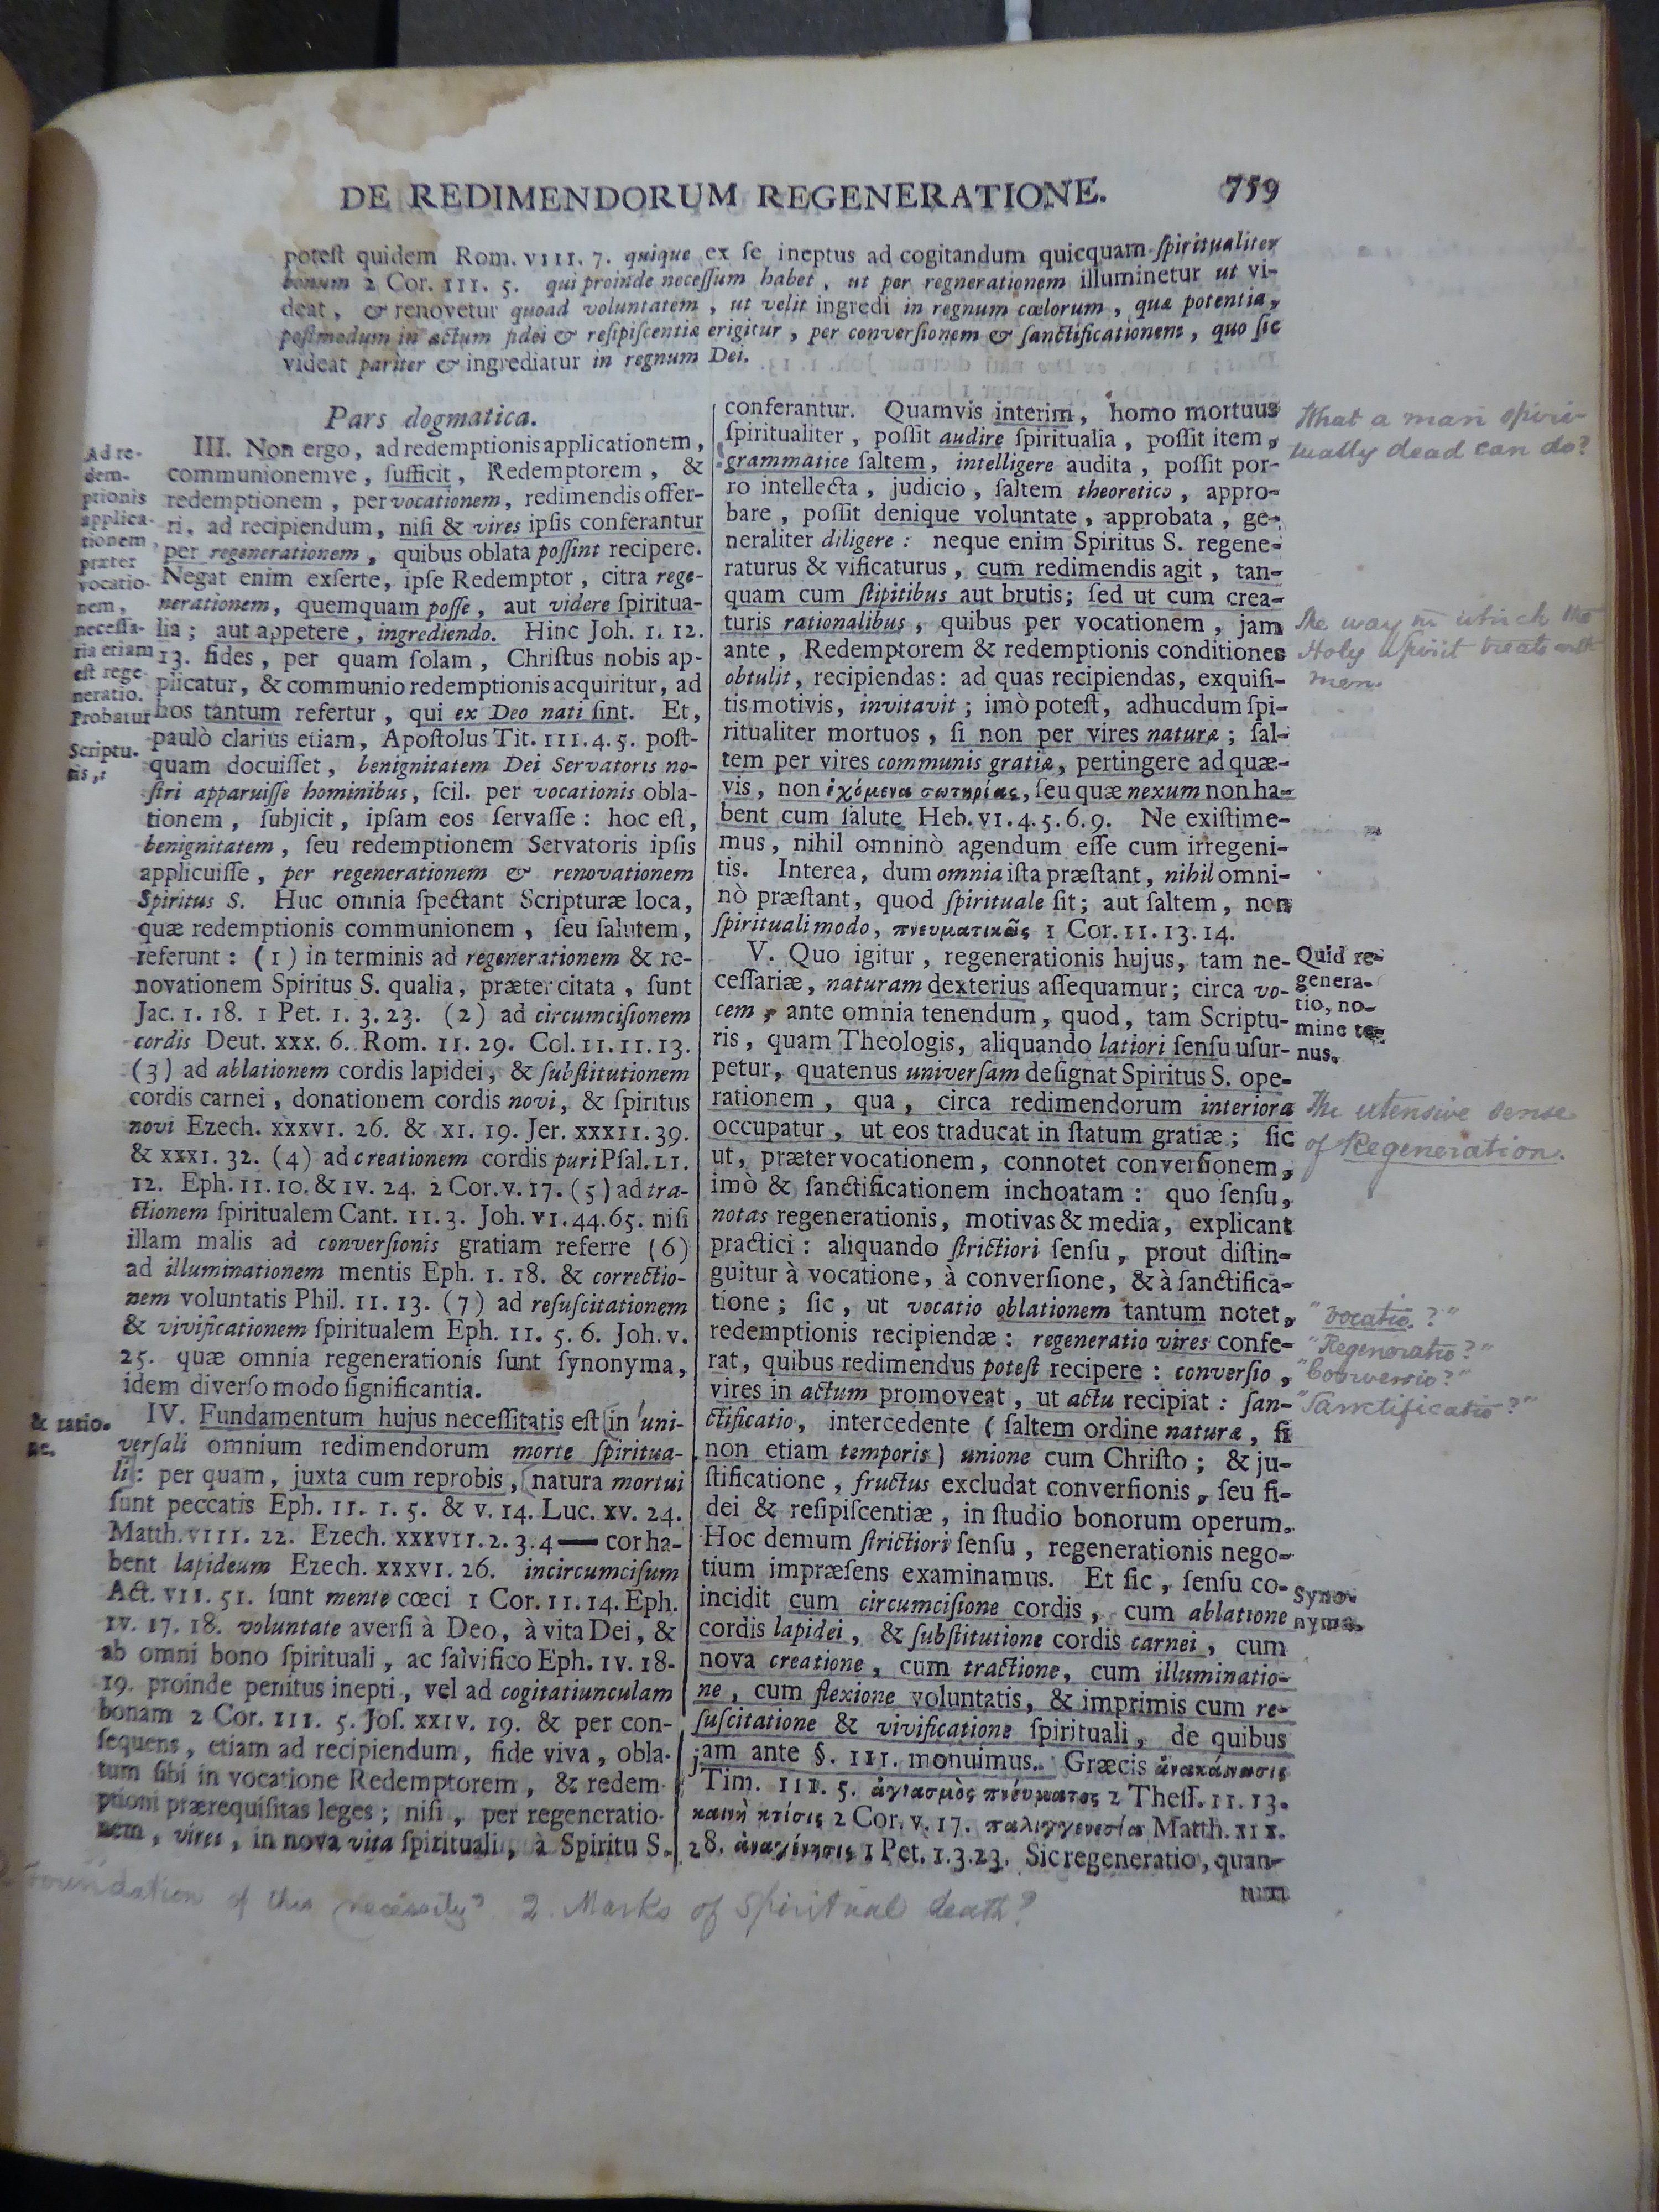 DE REDIMENDORUM REGENERATIONE. 759
poteſt quidem Rom. VIII. 7. quique ex ſe ineptus ad cogitandum quicquam ſpiritualiter
bonum 2 Cor. III. 5. qui proinde neceſſum habet, ut per regnerationem illuminetur ut vi-
deat, & renovetur quoad voluntatem, ut velit ingredi in regnum cœlorum, quæ potentia,
poſtmodum in actum fidei & reſipiſcentiæ erigitur, per converſionem & ſanctificationem, quo ſic
videat pariter & ingrediatur in regnum Dei.
Pars dogmatica.
Ad re-
dem-
ptionis
applica-
tionem,
præter
vocatio-
nem,
neceſſa-
ria etiam
eſt rege-
neratio.
Probatur
Scriptu-
ris,
III. Non ergo, ad redemptionis applicationem,
communionemve, ſufficit, Redemptorem, &
redemptionem, per vocationem, redimendis offer-
ri, ad recipiendum, niſi & vires ipſis conferantur
per regenerationem, quibus oblata poſſint recipere.
Negat enim exſerte, ipſe Redemptor, citra rege-
nerationem, quemquam poſſe, aut videre ſpiritua-
lia; aut appetere, ingrediendo. Hinc Joh. I. 12.
13. fides, per quam ſolam, Chriſtus nobis ap-
plicatur, & communio redemptionis acquiritur, ad
hos tantum refertur, qui ex Deo nati ſint. Et,
paulò clarius etiam, Apoſtolus Tit. III. 4. 5. poſt-
quam docuiſſet, benignitatem Dei Servatoris no-
ſtri apparuiſſe hominibus, ſcil. per vocationis obla-
tionem, ſubjicit, ipſam eos ſervaſſe: hoc eſt,
benignitatem, ſeu redemptionem Servatoris ipſis
applicuiſſe, per regenerationem & renovationem
Spiritus S. Huc omnia ſpectant Scripturæ loca,
quæ redemptionis communionem, ſeu ſalutem,
referunt: (1) in terminis ad regenerationem & re-
novationem Spiritus S. qualia, præter citata, ſunt
Jac. I. 18. 1 Pet. I. 3. 23. (2) ad circumciſionem
cordis Deut. XXX. 6. Rom. II. 29. Col. II. 11. 13.
(3) ad ablationem cordis lapidei, & ſubſtitutionem
cordis carnei, donationem cordis novi, & ſpiritus
novi Ezech. XXXVI. 26. & XI. 19. Jer. XXXII. 39.
& XXXI. 32. (4) ad creationem cordis puri Pſal. LI.
12. Eph. II. 10. & IV. 24. 2 Cor. V. 17. (5) ad tra-
ctionem ſpiritualem Cant. II. 3. Joh. VI. 44. 65. niſi
illam malis ad converſionis gratiam referre (6)
ad illuminationem mentis Eph. I. 18. & correctio-
nem voluntatis Phil. II. 13. (7) ad reſuſcitationem
& vivificationem ſpiritualem Eph. II. 5. 6. Joh. V.
25. quæ omnia regenerationis ſunt ſynonyma,
idem diverſo modo ſignificantia.
& ratio-
ne.
IV. Fundamentum hujus neceſſitatis eſt in uni-
verſali omnium redimendorum morte ſpiritua-
li: per quam, juxta cum reprobis, natura mortui
ſunt peccatis Eph. II. 1. 5. & V. 14. Luc. XV. 24.
Matth. VIII. 22. Ezech. XXXVII. 2. 3. 4 — cor ha-
bent lapideum Ezech. XXXVI. 26. incircumciſum
Act. VII. 51. ſunt mente cœci 1 Cor. II. 14. Eph.
IV. 17. 18. voluntate averſi à Deo, à vita Dei, &
ab omni bono ſpirituali, ac ſalvifico Eph. IV. 18-
19. proinde penitus inepti, vel ad cogitatiunculam
bonam 2 Cor. III. 5. Joſ. XXIV. 19. & per con-
ſequens, etiam ad recipiendum, fide viva, obla-
tum ſibi in vocatione Redemptorem, & redem-
ptioni prærequiſitas leges; niſi, per regeneratio-
nem, vires, in nova vita ſpirituali, à Spiritu S.
conferantur. Quamvis interim, homo mortuus
ſpiritualiter, poſſit audire ſpiritualia, poſſit item,
grammatice ſaltem, intelligere audita, poſſit por-
ro intellecta, judicio, ſaltem theoretico, appro-
bare, poſſit denique voluntate, approbata, ge-
neraliter diligere: neque enim Spiritus S. regene-
raturus & vificaturus, cum redimendis agit, tan-
quam cum ſtipitibus aut brutis; ſed ut cum crea-
turis rationalibus, quibus per vocationem, jam
ante, Redemptorem & redemptionis conditiones
obtulit, recipiendas: ad quas recipiendas, exquiſi-
tis motivis, invitavit; imò poteſt, adhucdum ſpi-
ritualiter mortuos, ſi non per vires naturæ; ſal-
tem per vires communis gratiæ, pertingere ad quæ-
vis, non ἐχόμενα σωτηρίας, ſeu quæ nexum non ha-
bent cum ſalute Heb. VI. 4. 5. 6. 9. Ne exiſtime-
mus, nihil omninò agendum eſſe cum irregeni-
tis. Interea, dum omnia iſta præſtant, nihil omni-
nò præſtant, quod ſpirituale ſit; aut ſaltem, non
ſpirituali modo, πνευματικῶς 1 Cor. II. 13. 14.
V. Quo igitur, regenerationis hujus, tam ne-
ceſſariæ, naturam dexterius aſſequamur; circa vo-
cem, ante omnia tenendum, quod, tam Scriptu-
ris, quam Theologis, aliquando latiori ſenſu uſur-
petur, quatenus univerſam deſignat Spiritus S. ope-
rationem, qua, circa redimendorum interiora
occupatur, ut eos traducat in ſtatum gratiæ; ſic
ut, præter vocationem, connotet converſionem,
imò & ſanctificationem inchoatam: quo ſenſu,
notas regenerationis, motivas & media, explicant
practici: aliquando ſtrictiori ſenſu, prout diſtin-
guitur à vocatione, à converſione, & à ſanctifica-
tione; ſic, ut vocatio oblationem tantum notet,
redemptionis recipiendæ: regeneratio vires confe-
rat, quibus redimendus poteſt recipere: converſio,
vires in actum promoveat, ut actu recipiat: ſan-
ctificatio, intercedente (ſaltem ordine naturæ, ſi
non etiam temporis) unione cum Chriſto; & ju-
ſtificatione, fructus excludat converſionis, ſeu fi-
dei & reſipiſcentiæ, in ſtudio bonorum operum.
Hoc demum ſtrictiori ſenſu, regenerationis nego-
tium impræſens examinamus. Et ſic, ſenſu co-
incidit cum circumciſione cordis, cum ablatione
cordis lapidei, & ſubſtitutione cordis carnei, cum
nova creatione, cum tractione, cum illuminatio-
ne, cum flexione voluntatis, & imprimis cum re-
ſuſcitatione & vivificatione ſpirituali, de quibus
jam ante §. III. monuimus. Græcis ἀνακαίνωσις
Tim. III. 5. ἁγιασμὸς πνεύματος 2 Theſſ. II. 13.
καινὴ κτίσις 2 Cor. V. 17. παλιγγενεσία Matth. XIX.
28. ἀναγέννησις 1 Pet. I. 3. 23. Sic regeneratio, quan-
tum
What a man spiri-
tually dead can do?
The way in which the
Holy Spirit treats with
men.
Quid re-
genera-
tio, no-
mine te-
nus.
The extensive sense
of Regeneration.
"Vocatio?"
"Regeneratio?"
"Conversio?"
"Sanctificatio?"
Syno-
nyma.
Foundation of this necessity? 2. Marks of Spiritual death?